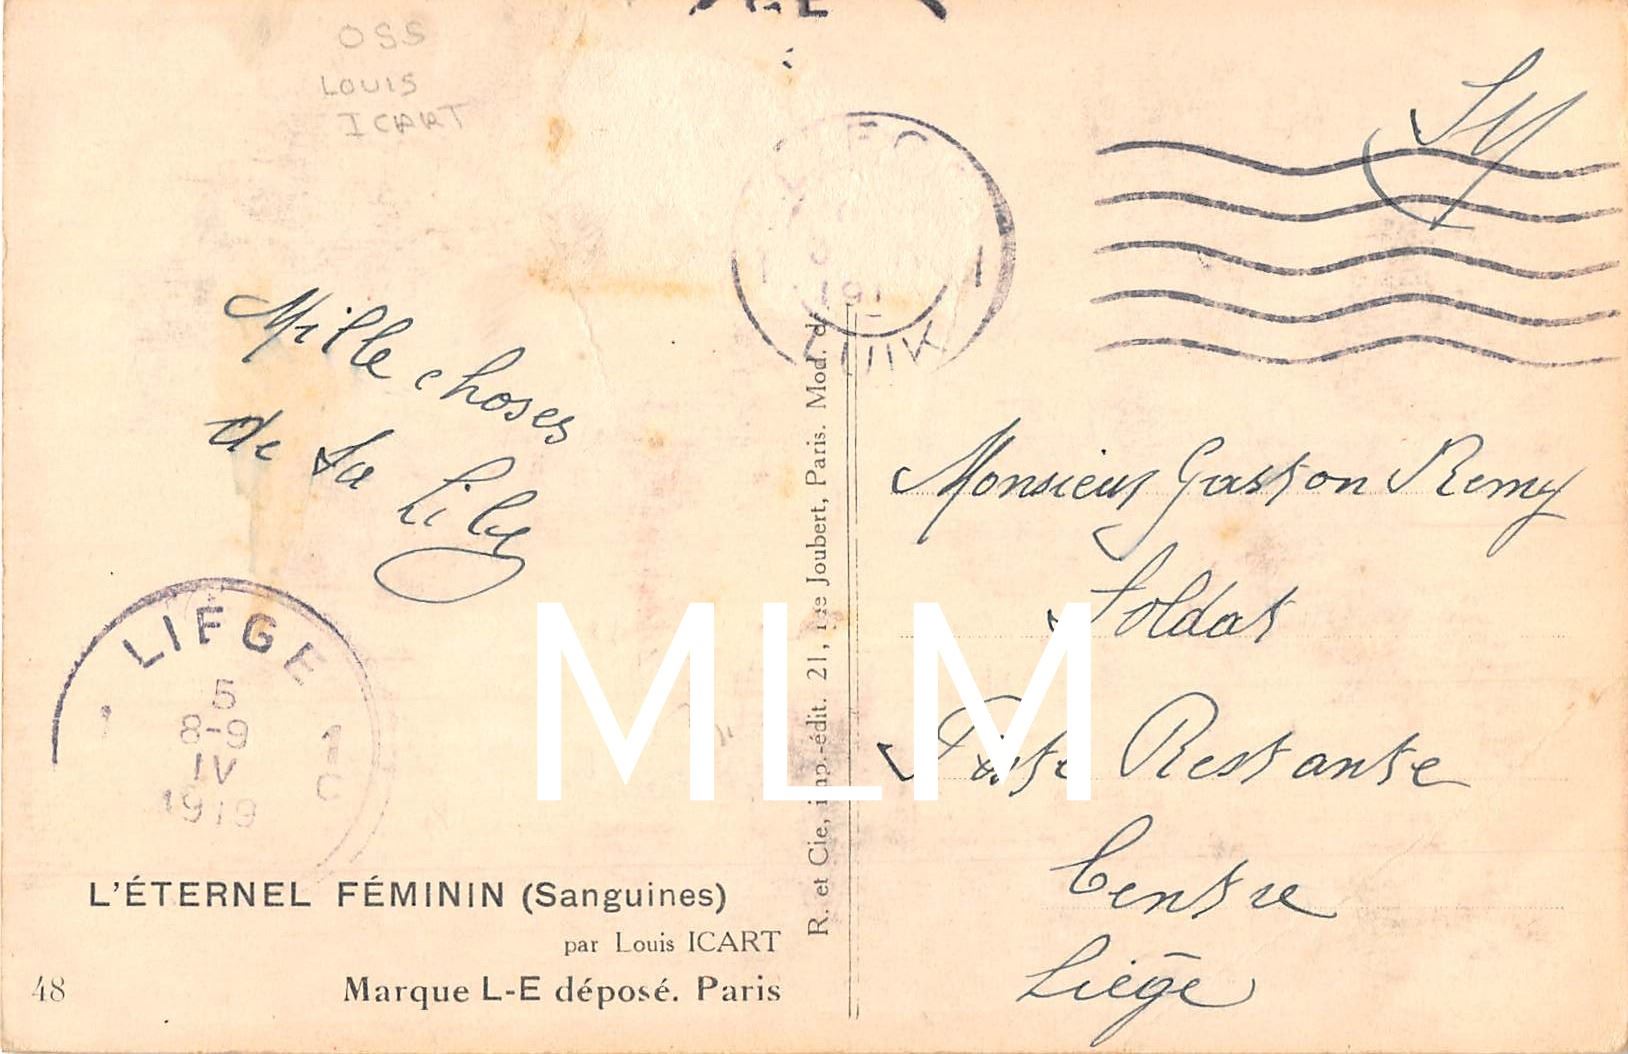 OSS
LOUIS
ICART
Mille choses
de ta Lily
LIEGE
1
5
8-9
IV
1919
1
C
L'ÉTERNEL FÉMININ (Sanguines)
par Louis ICART
48
Marque L-E déposé. Paris
R. et Cie, imp.-édit. 21, rue Joubert, Paris. Mod. dé
LUIK
Monsieur Gaston Remy
Soldat
Poste Restante
Centre
Liège
MLM